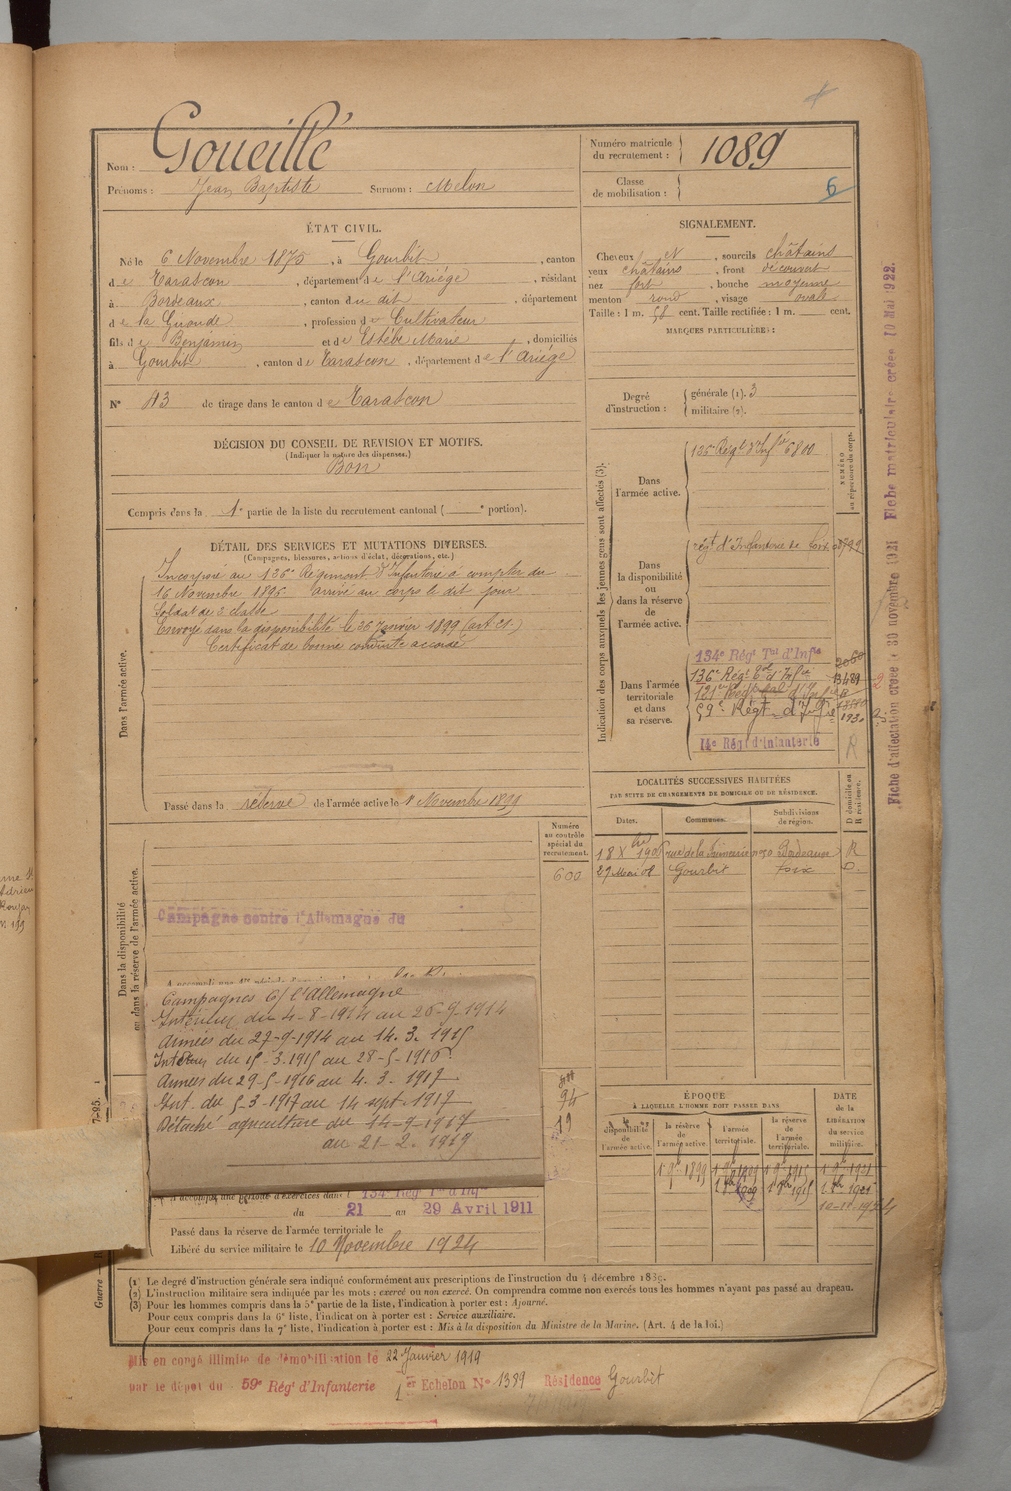 Nom : Goueillé
Prénoms : Jean Baptiste Surnom : Melon
Numéro matricule du recrutement : 1089
Classe de mobilisation :
6
ÉTAT CIVIL.
Né le 6 Novembre 1875, à Gourbit, canton
de Tarascon, département de l'Ariège, résidant
à Bordeaux, canton du dit, département
de la Gironde, profession de Cultivateur
fils de Benjamin et de Estèbe Marie, domiciliés
à Gourbit, canton de Tarascon, département de l'Ariège
N° 43 de tirage dans le canton de Tarascon
SIGNALEMENT.
Cheveux et, sourcils châtains
yeux châtains, front découvert
nez fort, bouche moyenne
menton rond, visage ovale
Taille : 1 m. 58 cent. Taille rectifiée : 1 m. cent.
MARQUES PARTICULIÈRES :
Degré d'instruction : générale (1). 3
militaire (2).
DÉCISION DU CONSEIL DE REVISION ET MOTIFS.
(Indiquer la nature des dispenses.)
Bon
Compris dans la 1e partie de la liste du recrutement cantonal ( e portion).
DÉTAIL DES SERVICES ET MUTATIONS DIVERSES.
(Campagnes, blessures, actions d'éclat, décorations, etc.)
Dans l'armée active.
Incorporé au 136e Régiment d'Infanterie à compter du
16 Novembre 1896 arrivé au corps le dit jour
Soldat de 2e classe
Envoyé dans la disponibilité le Janvier 1899
Certificat de bonne conduite accordé
Passé dans la réserve de l'armée active le 1er Novembre 1899
Indication des corps auxquels les jeunes gens sont affectés (3).
NUMÉRO au répertoire du corps.
Dans l'armée active.
Régt d'Infie 6800
Dans la disponibilité ou dans la réserve de l'armée active.
régt d'Infanterie de
Dans l'armée territoriale et dans sa réserve.
134e Régt Tal d'Infie
136e Régt d'Infie
59e Régt d'Infie
14e Régt d'Infanterie
R
LOCALITÉS SUCCESSIVES HABITÉES
PAR SUITE DE CHANGEMENTS DE DOMICILE OU DE RÉSIDENCE.
Dates. Communes. Subdivisions de région. D domicile ou R résidence.
Bordeaux R
29 Mai 08 Gourbit Foix D.
Numéro au contrôle spécial du recrutement.
600
Dans la disponibilité ou dans la réserve de l'armée active.
Campagne contre l'Allemagne du
Campagnes c/ l'Allemagne
Intérieur du 4-8-1914 au 26-9-1914
Armées du 27-9-1914 au 14. 3. 1915
Intérieur du 15-3.1915 au 28-5-1916
Armées du 29-5-1916 au 4. 3. 1917
Int. du 5-3-1917 au 14 sept. 1917
Détaché agriculture du 14-9-1917
au 21-2. 1919
94
19
A accompli une période d'exercices dans l 134e Régt Tal d'Infie
du 21 au 29 Avril 1911
Passé dans la réserve de l'armée territoriale le
Libéré du service militaire le 10 Novembre 1924
ÉPOQUE
À LAQUELLE L'HOMME DOIT PASSER DANS
la disponibilité de l'armée active. la réserve de l'armée active. l'armée territoriale. la réserve de l'armée territoriale. DATE de la LIBÉRATION du service militaire.
10-11-1924
(1) Le degré d'instruction générale sera indiqué conformément aux prescriptions de l'instruction du 4 décembre 1889.
(2) L'instruction militaire sera indiquée par les mots : exercé ou non exercé. On comprendra comme non exercés tous les hommes n'ayant pas passé au drapeau.
(3) Pour les hommes compris dans la 5e partie de la liste, l'indication à porter est : Ajourné.
Pour ceux compris dans la 6e liste, l'indication à porter est : Service auxiliaire.
Pour ceux compris dans la 7e liste, l'indication à porter est : Mis à la disposition du Ministre de la Marine. (Art. 4 de la loi.)
Mis en congé illimité de démobilisation le 22 Janvier 1919
par le dépôt du 59e Régt d'Infanterie 1er Echelon N° 1389 Résidence Gourbit
Fiche d'affectation créée le 30 novembre 1921 Fiche matriculaire créée 10 Mai 1922.